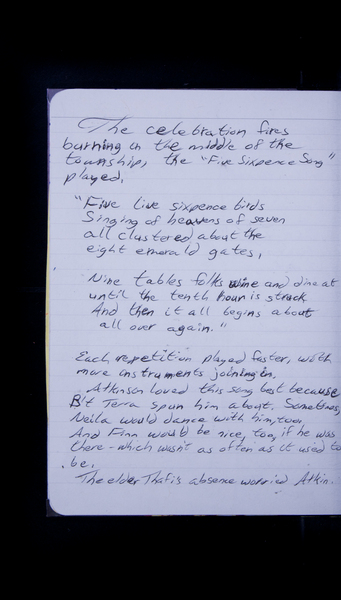 The celebration fires
burning in the middle of the
township, the "Five Sixpence Song"
played,
"Five live sixpence birds
Singing of heavens of seven
all clustered about the
eight emerald gates,
Nine tables folks wine and dine at
until the tenth hour is struck
And then it all begins about
all over again."
Each repetition played faster, with
more instruments joining in.
Atkinson loved this song best because
B't Terra spun him about. Sometimes,
Neila would dance with him, too,
And Finn would be nice, too, if he was
there - which wasn't as often as it used to
be.
The elder Thaf's absence worried Atkin.